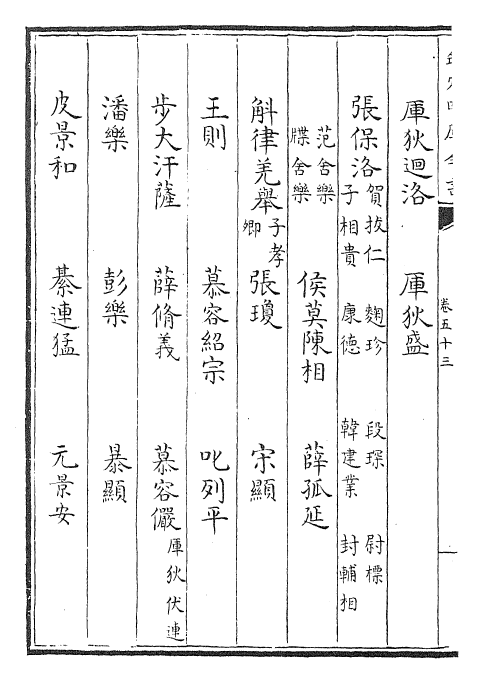 欽定四庫全書
卷五十三
厙狄迴洛　厙狄盛
張保洛
賀拔仁　麴珍　段琛　尉摽
子相貴　康德　韓建業　封輔相
范舍樂
牒舍樂
侯莫陳相　薛孤延
斛律羌舉
子孝
卿
張瓊　宋顯
王則　慕容紹宗　叱列平
步大汗薩　薛脩義　慕容儼
厙狄伏連
潘樂　彭樂　暴顯
皮景和　綦連猛　元景安